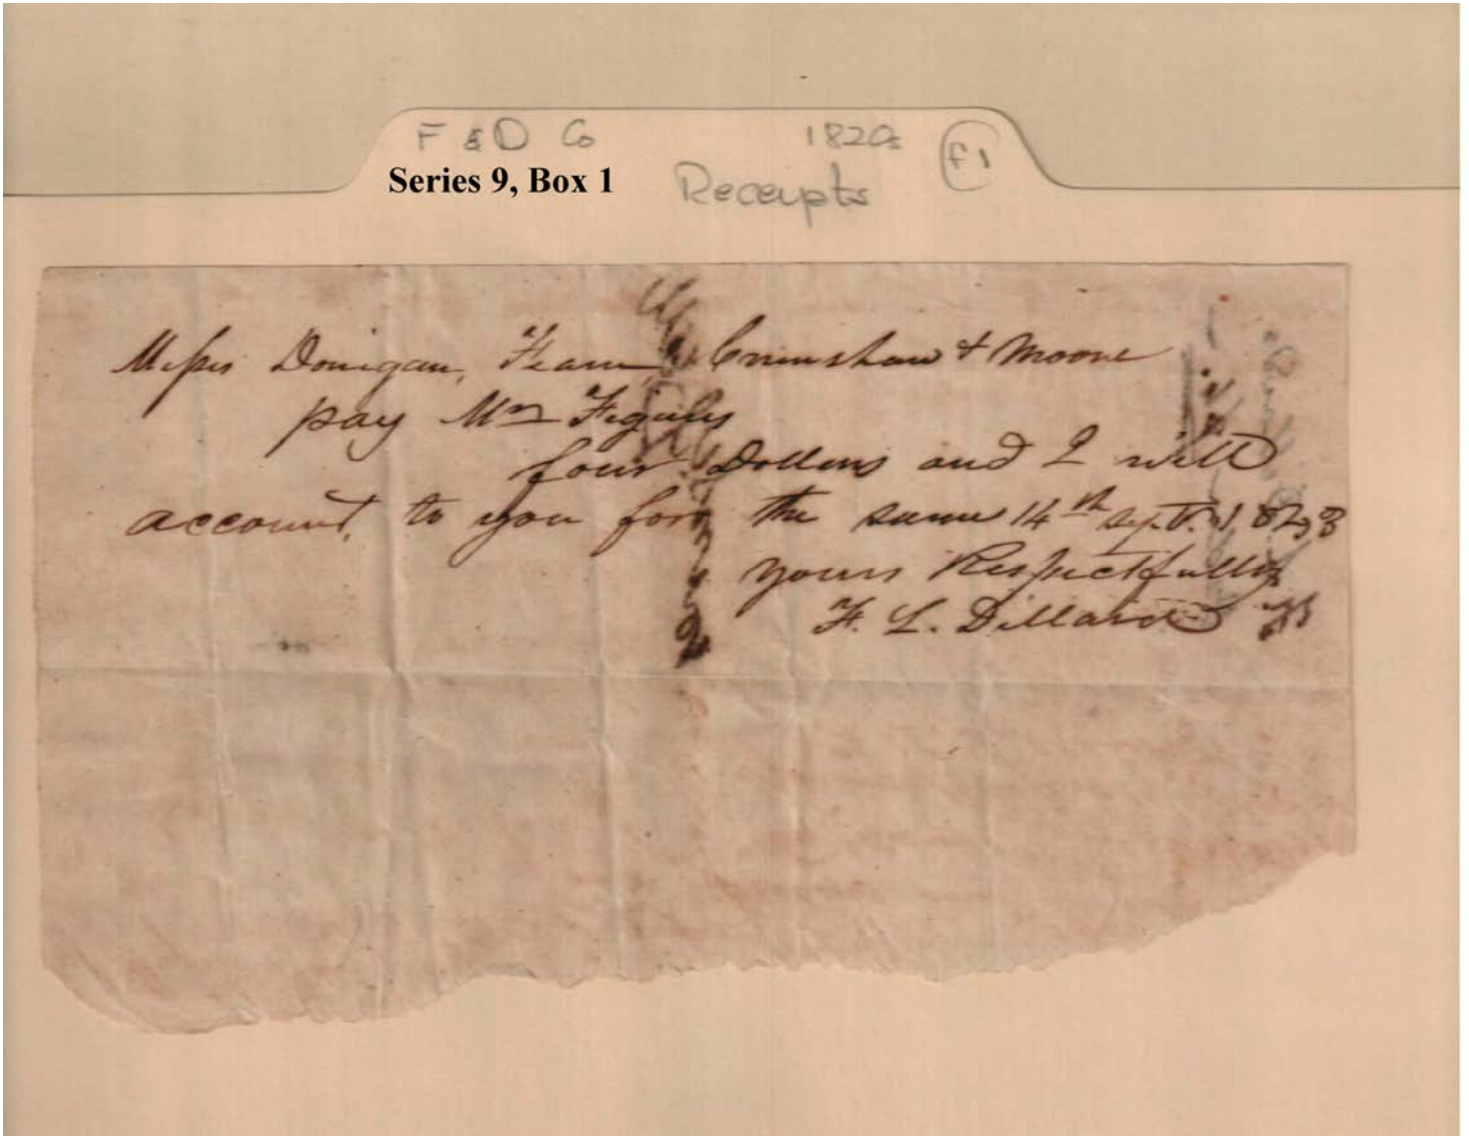 F & D Co 1820s F1
Series 9, Box 1 Receipts
Messrs Donigan, Fearn, Crenshaw & Moore
pay Mr
four Dollars and I will
account, to you for the same 14th Sept. 1828
yours Respectfully
F. L. Dillard